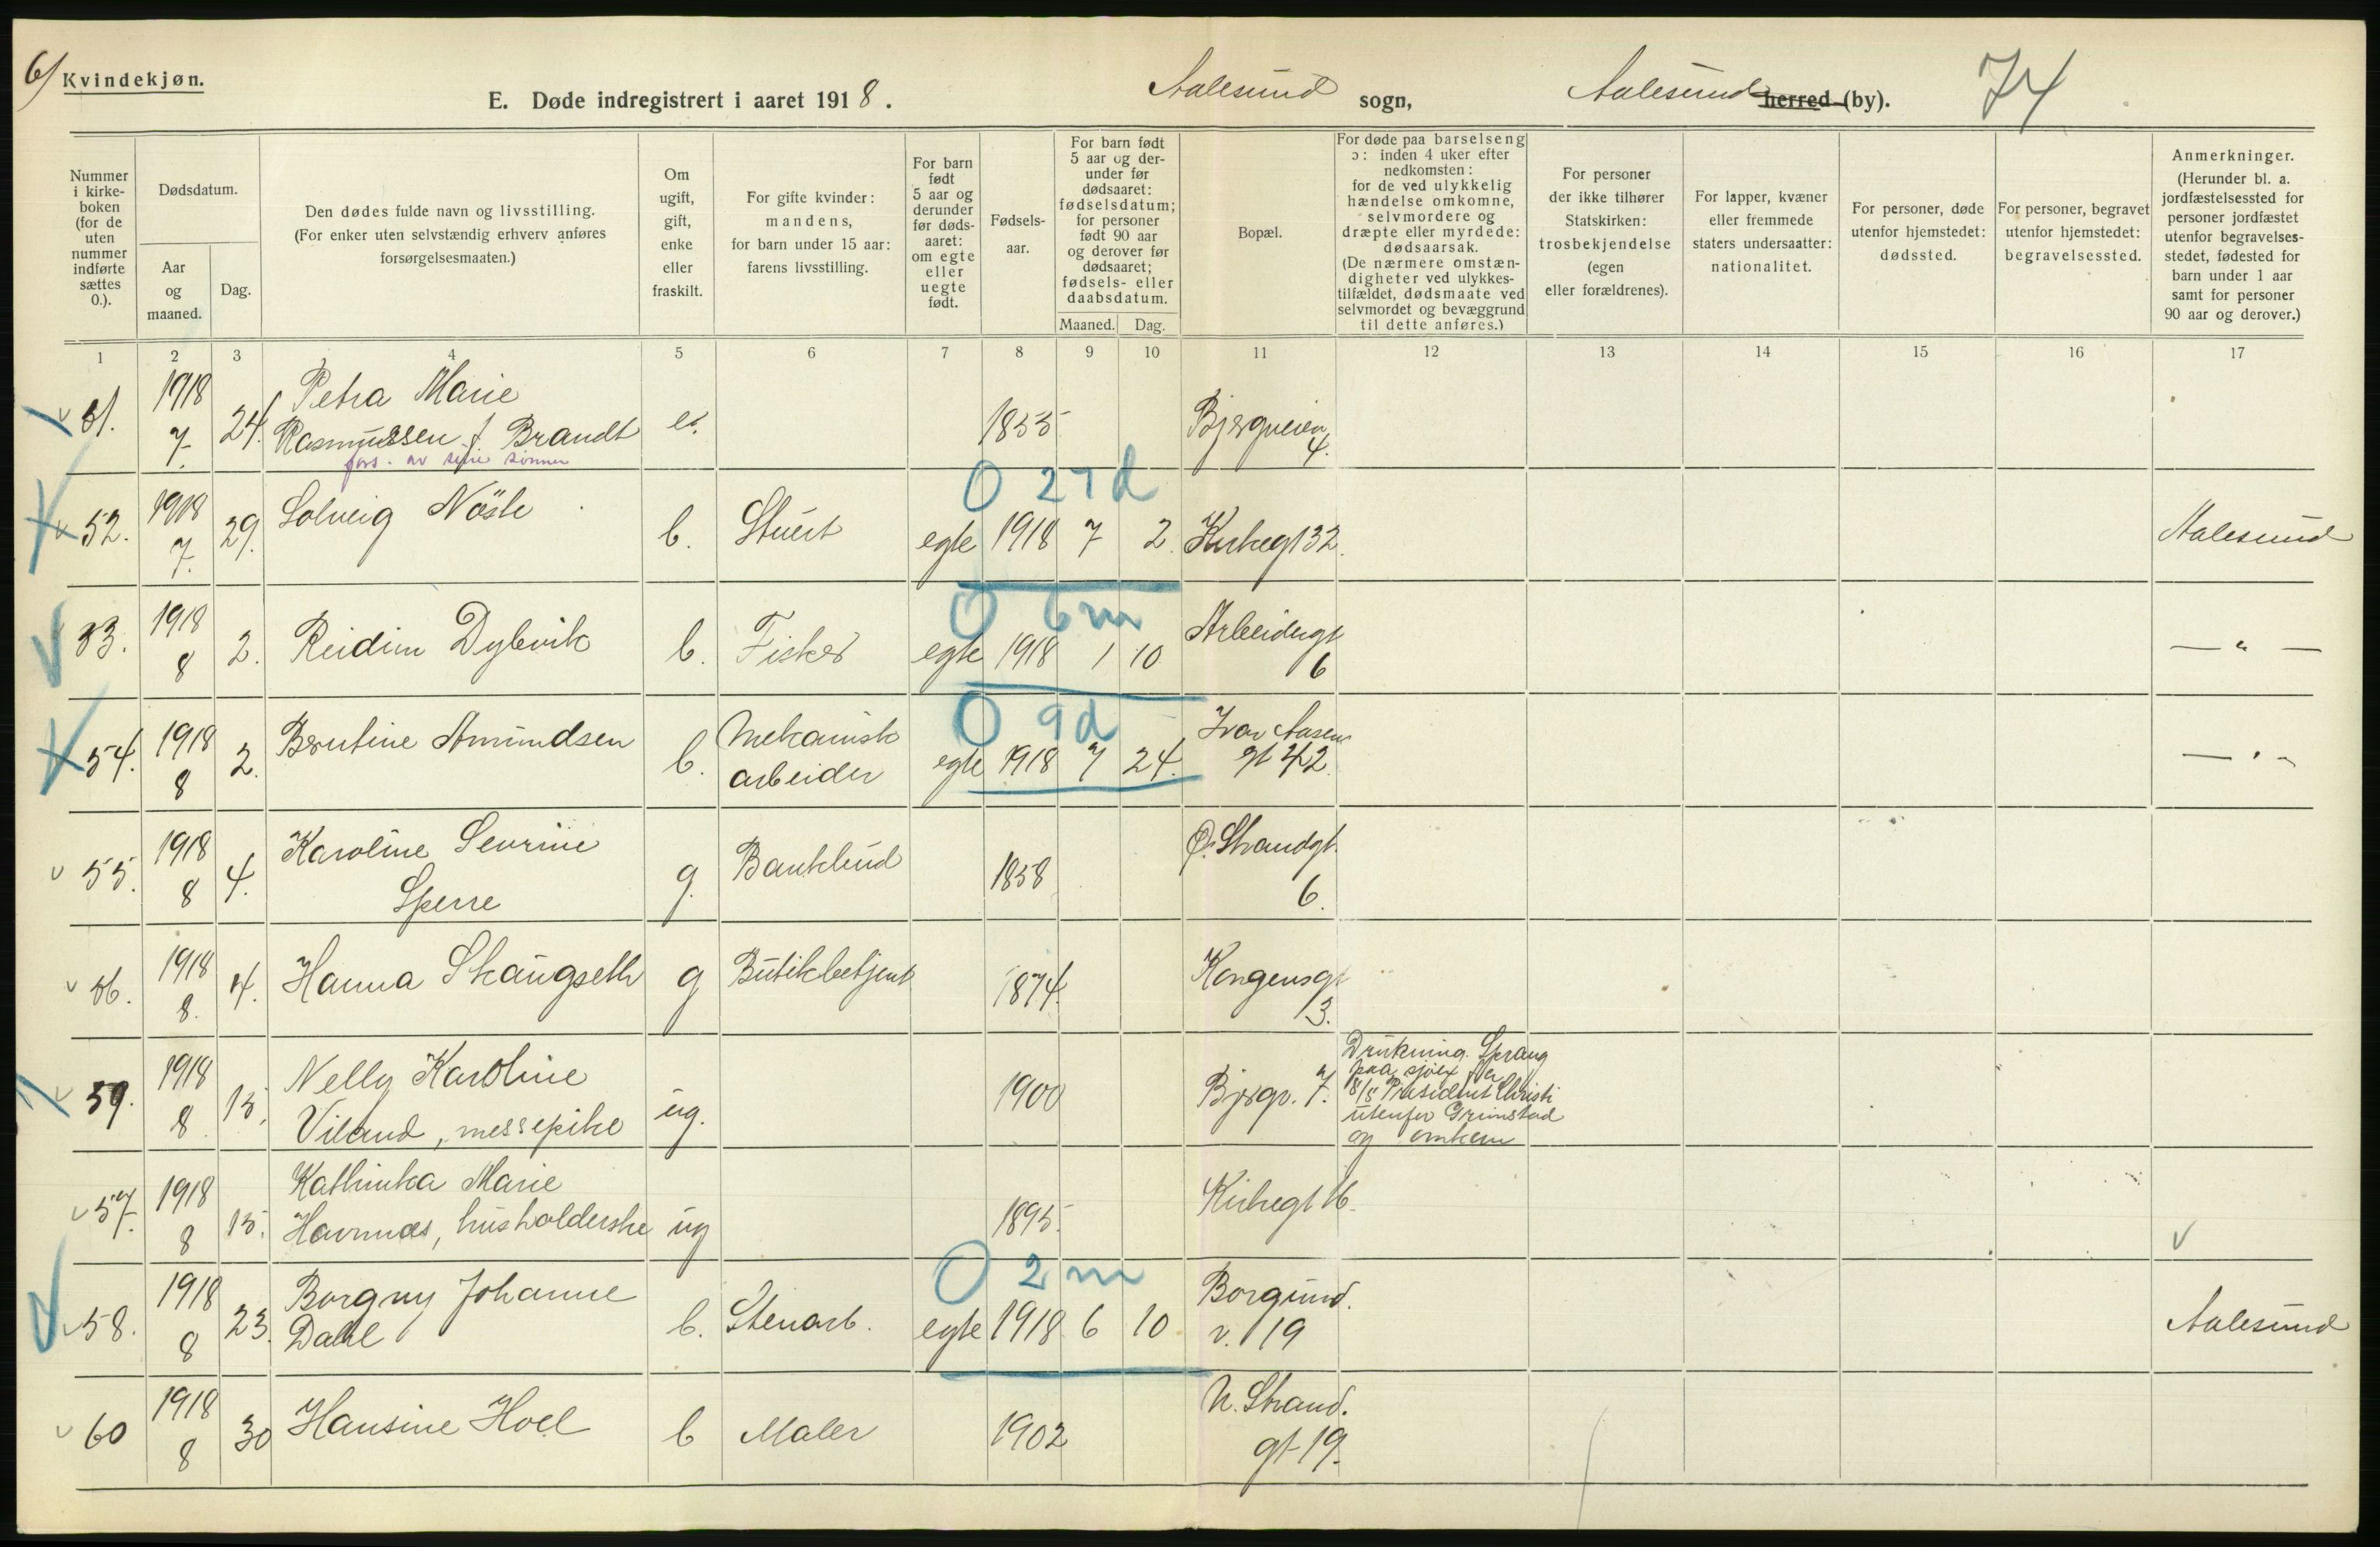 6/ Kvindekjøn.
E. Døde indregistrert i aaret 1918. Aalesund sogn, Aalesund herred (by). 74
Nummer i kirkeboken (for de uten nummer indførte sættes 0.).
Dødsdatum.
Aar og maaned.
Dag.
Den dødes fulde navn og livsstilling.
(For enker uten selvstændig erhverv anføres
forsørgelsesmaaten.)
Om ugift, gift, enke eller fraskilt.
For gifte kvinder: mandens, for barn under 15 aar: farens livsstilling.
For barn født 5 aar og derunder før dødsaaret: om egte eller uegte født.
Fødselsaar.
For barn født 5 aar og derunder før dødsaaret: fødselsdatum; for personer født 90 aar og derover før dødsaaret; fødsels- eller daabsdatum.
Maaned. Dag.
Bopæl.
For døde paa barselseng ɔ: inden 4 uker efter nedkomsten: for de ved ulykkelig hændelse omkomne, selvmordere og dræpte eller myrdede: dødsaarsak. (De nærmere omstændigheter ved ulykkestilfældet, dødsmaate ved selvmordet og bevæggrund til dette anføres.)
For personer der ikke tilhører Statskirken: trosbekjendelse (egen eller forældrenes).
For lapper, kvæner eller fremmede staters undersaatter: nationalitet.
For personer, døde utenfor hjemstedet: dødssted.
For personer, begravet utenfor hjemstedet: begravelsessted.
Anmerkninger. (Herunder bl. a. jordfæstelsessted for personer jordfæstet utenfor begravelsesstedet, fødested for barn under 1 aar samt for personer 90 aar og derover.)
1 2 3 4 5 6 7 8 9 10 11 12 13 14 15 16 17
51. 1918 7. 24. Petra Marie
Rasmussen f. Brandt e. 1855 Bjørgveien 4.
fors. av sine sønner
0 27 d
52. 1918 7. 29. Solveig Nöste b. Stuert egte 1918 7 2. Kirkegt 32. Aalesund
0 6 m
53. 1918 8 2. Reidun Dybvik b. Fisker egte 1918 1 10 Arbeidergt 6 — " —
0 9 d
54. 1918 8 2. Berntine Amundsen b. Mekanisk
arbeider egte 1918 7 24. Ivar Aasens
gt 42. — " —
55. 1918 8 4. Karoline Sevrine
Sperre g. Bankbud 1858 Ø. Strandgt.
6.
56. 1918 8. 4. Hanna Skaugseth g Butikbetjent 1874. Kongensgt
3.
59. 1918 8 15. Nelly Karoline
Viland, messepike ug. 1900 Bjørgv. 7.
Drukning. Sprang
paa sjøen fra
8/8 Præsident Christi
utenfor Grimstad
og omkom
57. 1918 8 15. Kathinka Marie
Havnnæs, husholderske ug 1895. Kirkegt 16.
0 2 m
58. 1918 8 23. Borgny Johanne
Dahl b. Stenarb. egte 1918 6 10 Borgund.
v. 19 Aalesund
60 1918 8 30 Hansine Hoel b Maler 1902 N. Strand.
gt 19.